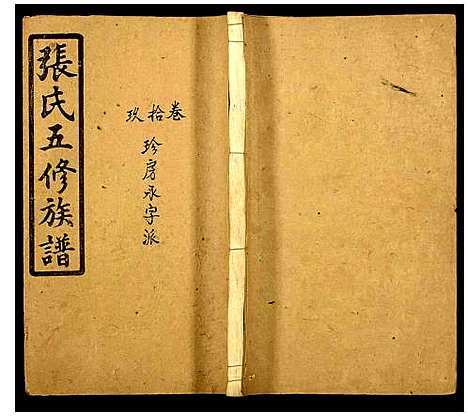 張氏五修族譜
卷拾玖
珍房永字派